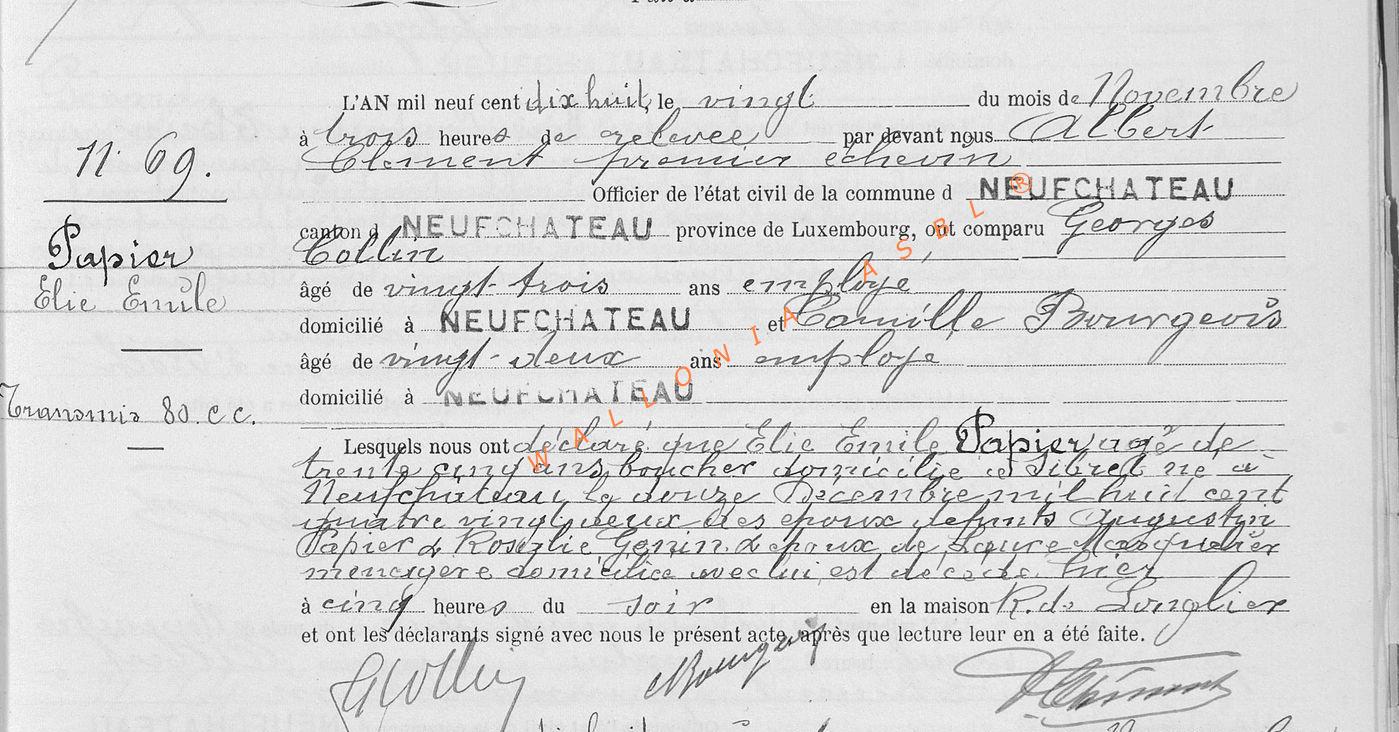 L'AN mil neuf cent dix huit, le vingt du mois de Novembre
à trois heures de relevée par devant nous Albert
Clément premier échevin
Officier de l'état civil de la commune d NEUFCHATEAU
canton d NEUFCHATEAU province de Luxembourg, ont comparu Georges
Collin
âgé de vingt-trois ans employé
domicilié à NEUFCHATEAU et Camille Bourgeois
âgé de vingt-deux ans employé
domicilié à NEUFCHATEAU
Lesquels nous ont déclaré que Elie Emile Papier agé de
trente cinq ans, boucher domicilié à Sibret né à
Neufchâteau le douze Décembre mil huit cent
quatre vingt deux des époux défunts Augustin
Papier & Rosalie Genin & époux de Laure Masquelier
ménagère domiciliée avec lui, est décédé hier
à cinq heures du soir en la maison R. de Longlier
et ont les déclarants signé avec nous le présent acte, après que lecture leur en a été faite.
GCollin Bourgeois AClément
N° 69.
Papier
Elie Emile
Transmis 80. c c.
WALLONIA ASBL ®